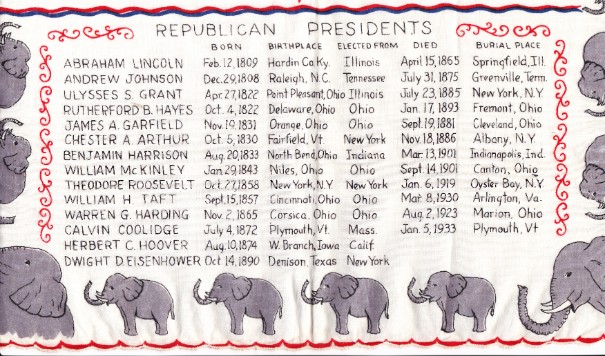 REPUBLICAN PRESIDENTS
BORN BIRTHPLACE ELECTED FROM DIED BURIAL PLACE
ABRAHAM LINCOLN Feb. 12, 1809 Hardin Co. Ky. Illinois April 15, 1865 Springfield, Ill.
ANDREW JOHNSON Dec. 29, 1808 Raleigh, N.C. Tennessee July 31, 1875 Greenville, Tenn.
ULYSSES S. GRANT Apr. 27, 1822 Point Pleasant, Ohio Illinois July 23, 1885 New York, N.Y.
RUTHERFORD B. HAYES Oct. 4, 1822 Delaware, Ohio Ohio Jan. 17, 1893 Fremont, Ohio
JAMES A. GARFIELD Nov. 19, 1831 Orange, Ohio Ohio Sept. 19, 1881 Cleveland, Ohio
CHESTER A. ARTHUR Oct. 5, 1830 Fairfield, Vt New York Nov. 18, 1886 Albany, N.Y.
BENJAMIN HARRISON Aug. 20, 1833 North Bend, Ohio Indiana Mar. 13, 1901 Indianapolis, Ind.
WILLIAM McKINLEY Jan. 29, 1843 Niles, Ohio Ohio Sept. 14, 1901 Canton, Ohio
THEODORE ROOSEVELT Oct. 27, 1858 New York, N.Y. New York Jan. 6, 1919 Oyster Bay, N.Y.
WILLIAM H. TAFT Sept. 15, 1857 Cincinnati, Ohio Ohio Mar. 8, 1930 Arlington, Va.
WARREN G. HARDING Nov. 2, 1865 Corsica, Ohio Ohio Aug. 2, 1923 Marion, Ohio
CALVIN COOLIDGE July 4, 1872 Plymouth, Vt. Mass. Jan. 5, 1933 Plymouth, Vt
HERBERT C. HOOVER Aug. 10, 1874 W. Branch, Iowa Calif.
DWIGHT D. EISENHOWER Oct 14, 1890 Denison, Texas New York